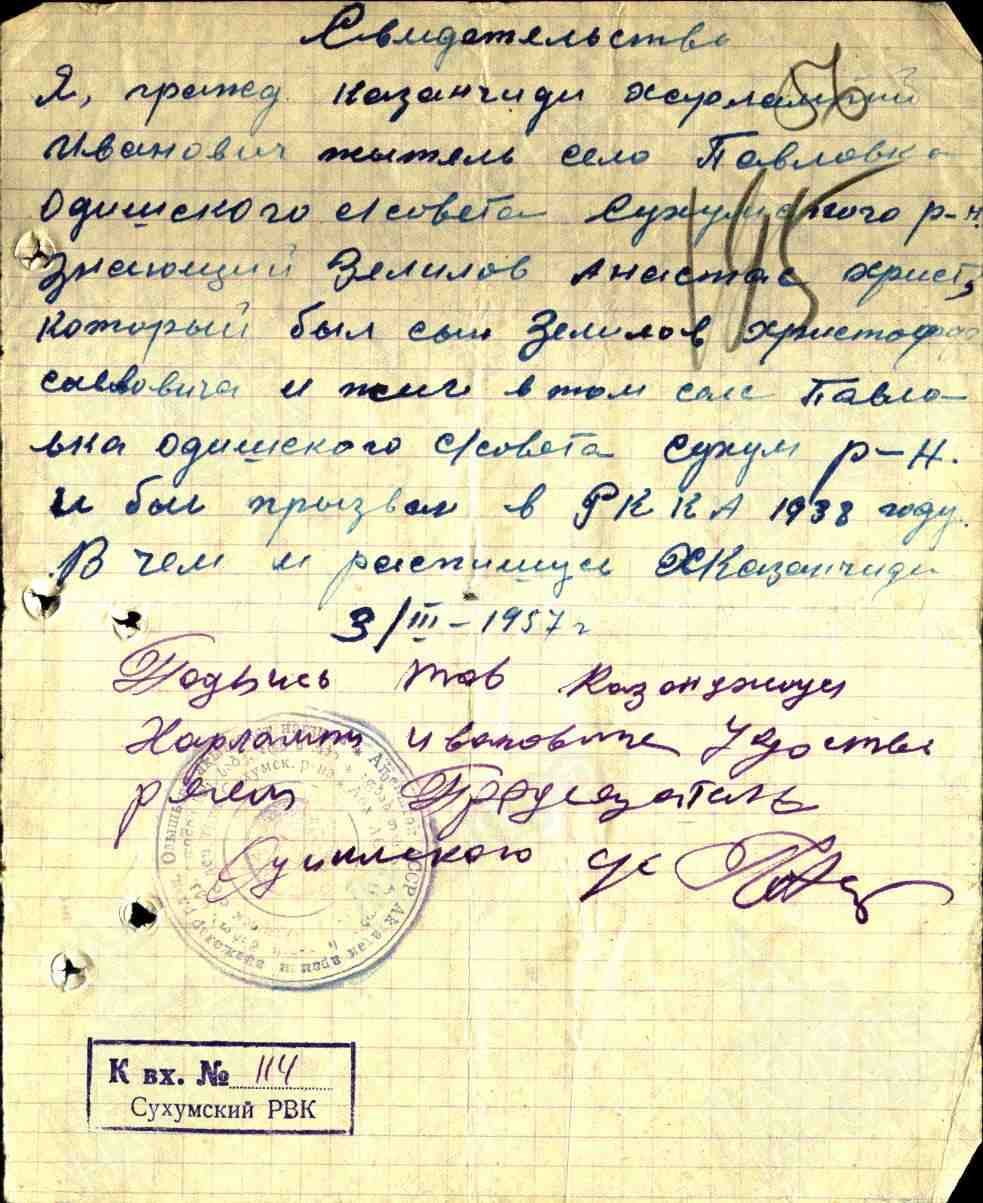 Свидетельство
56
Я, гражд. Казанчиди Харлампий
Иванович жытель село Павловка
Одишского с/совета Сухумского р-н.
195
знающий Зелилов Анастас Христ,
который был сын Зелилов Христофор
саввовича и жил в том селе Павло-
вка одишского с/совета Сухум р-н.
и был призван в РККА 1938 году.
В чем и распишусь ХКазанчиди
3/III-1957 г
Подысь тов Казанджиди
Харлампи Ивановича Удостве
ряем Председатель
с/с
К вх. № 114
Сухумский РВК